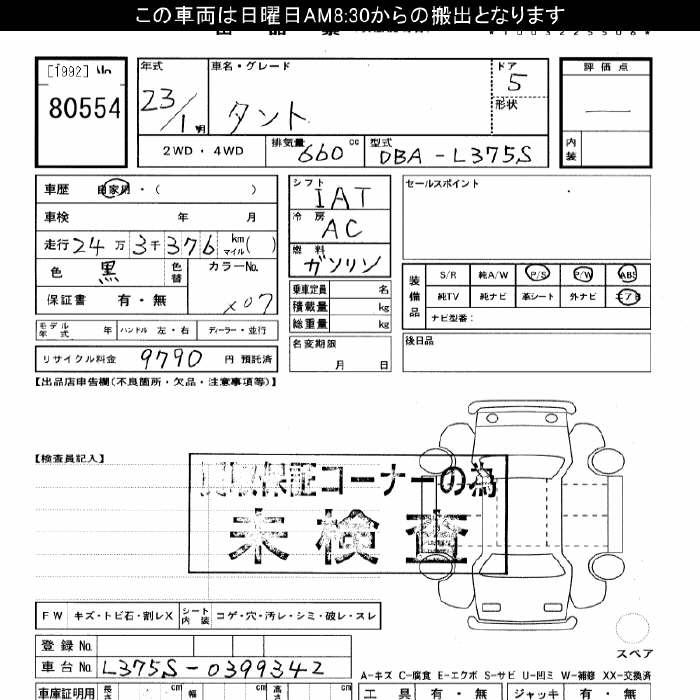 この車両は日曜日AM8:30からの搬出となります
[1992] No
80554
年式 車名・グレード ドア 評価点
23/1 タント 5
形状
2WD・4WD 排気量 660 cc 型式 DBA-L375S 内装
車歴 自家用・( )
車検 年 月
走行 24万 3千 376 km マイル ( )
色 黒 色替 カラーNo.
保証書 有・無 X07
モデル年式 年 ハンドル 左・右 ディーラー・並行
リサイクル料金 9790 円 預託済
シフト IAT
冷房 AC
燃料 ガソリン
乗車定員 名
積載量 kg
総重量 kg
名変期限
月 日
セールスポイント
装備品 S/R 純A/W P/S P/W ABS
純TV 純ナビ 革シート 外ナビ エアB
ナビ型番:
後日品
【出品店申告欄(不良箇所・欠品・注意事項等)】
【検査員記入】
保証コーナーの為
未検査
FW キズ・トビ石・割レX シート内装 コゲ・穴・汚レ・シミ・破レ・スレ
スペア
登録No.
車台No. L375S-0399342
A-キズ C-腐食 E-エクボ S-サビ U-凹ミ W-補修 XX-交換済
車庫証明用 長さ cm 幅 cm 高さ cm
工具 有・無 ジャッキ 有・無